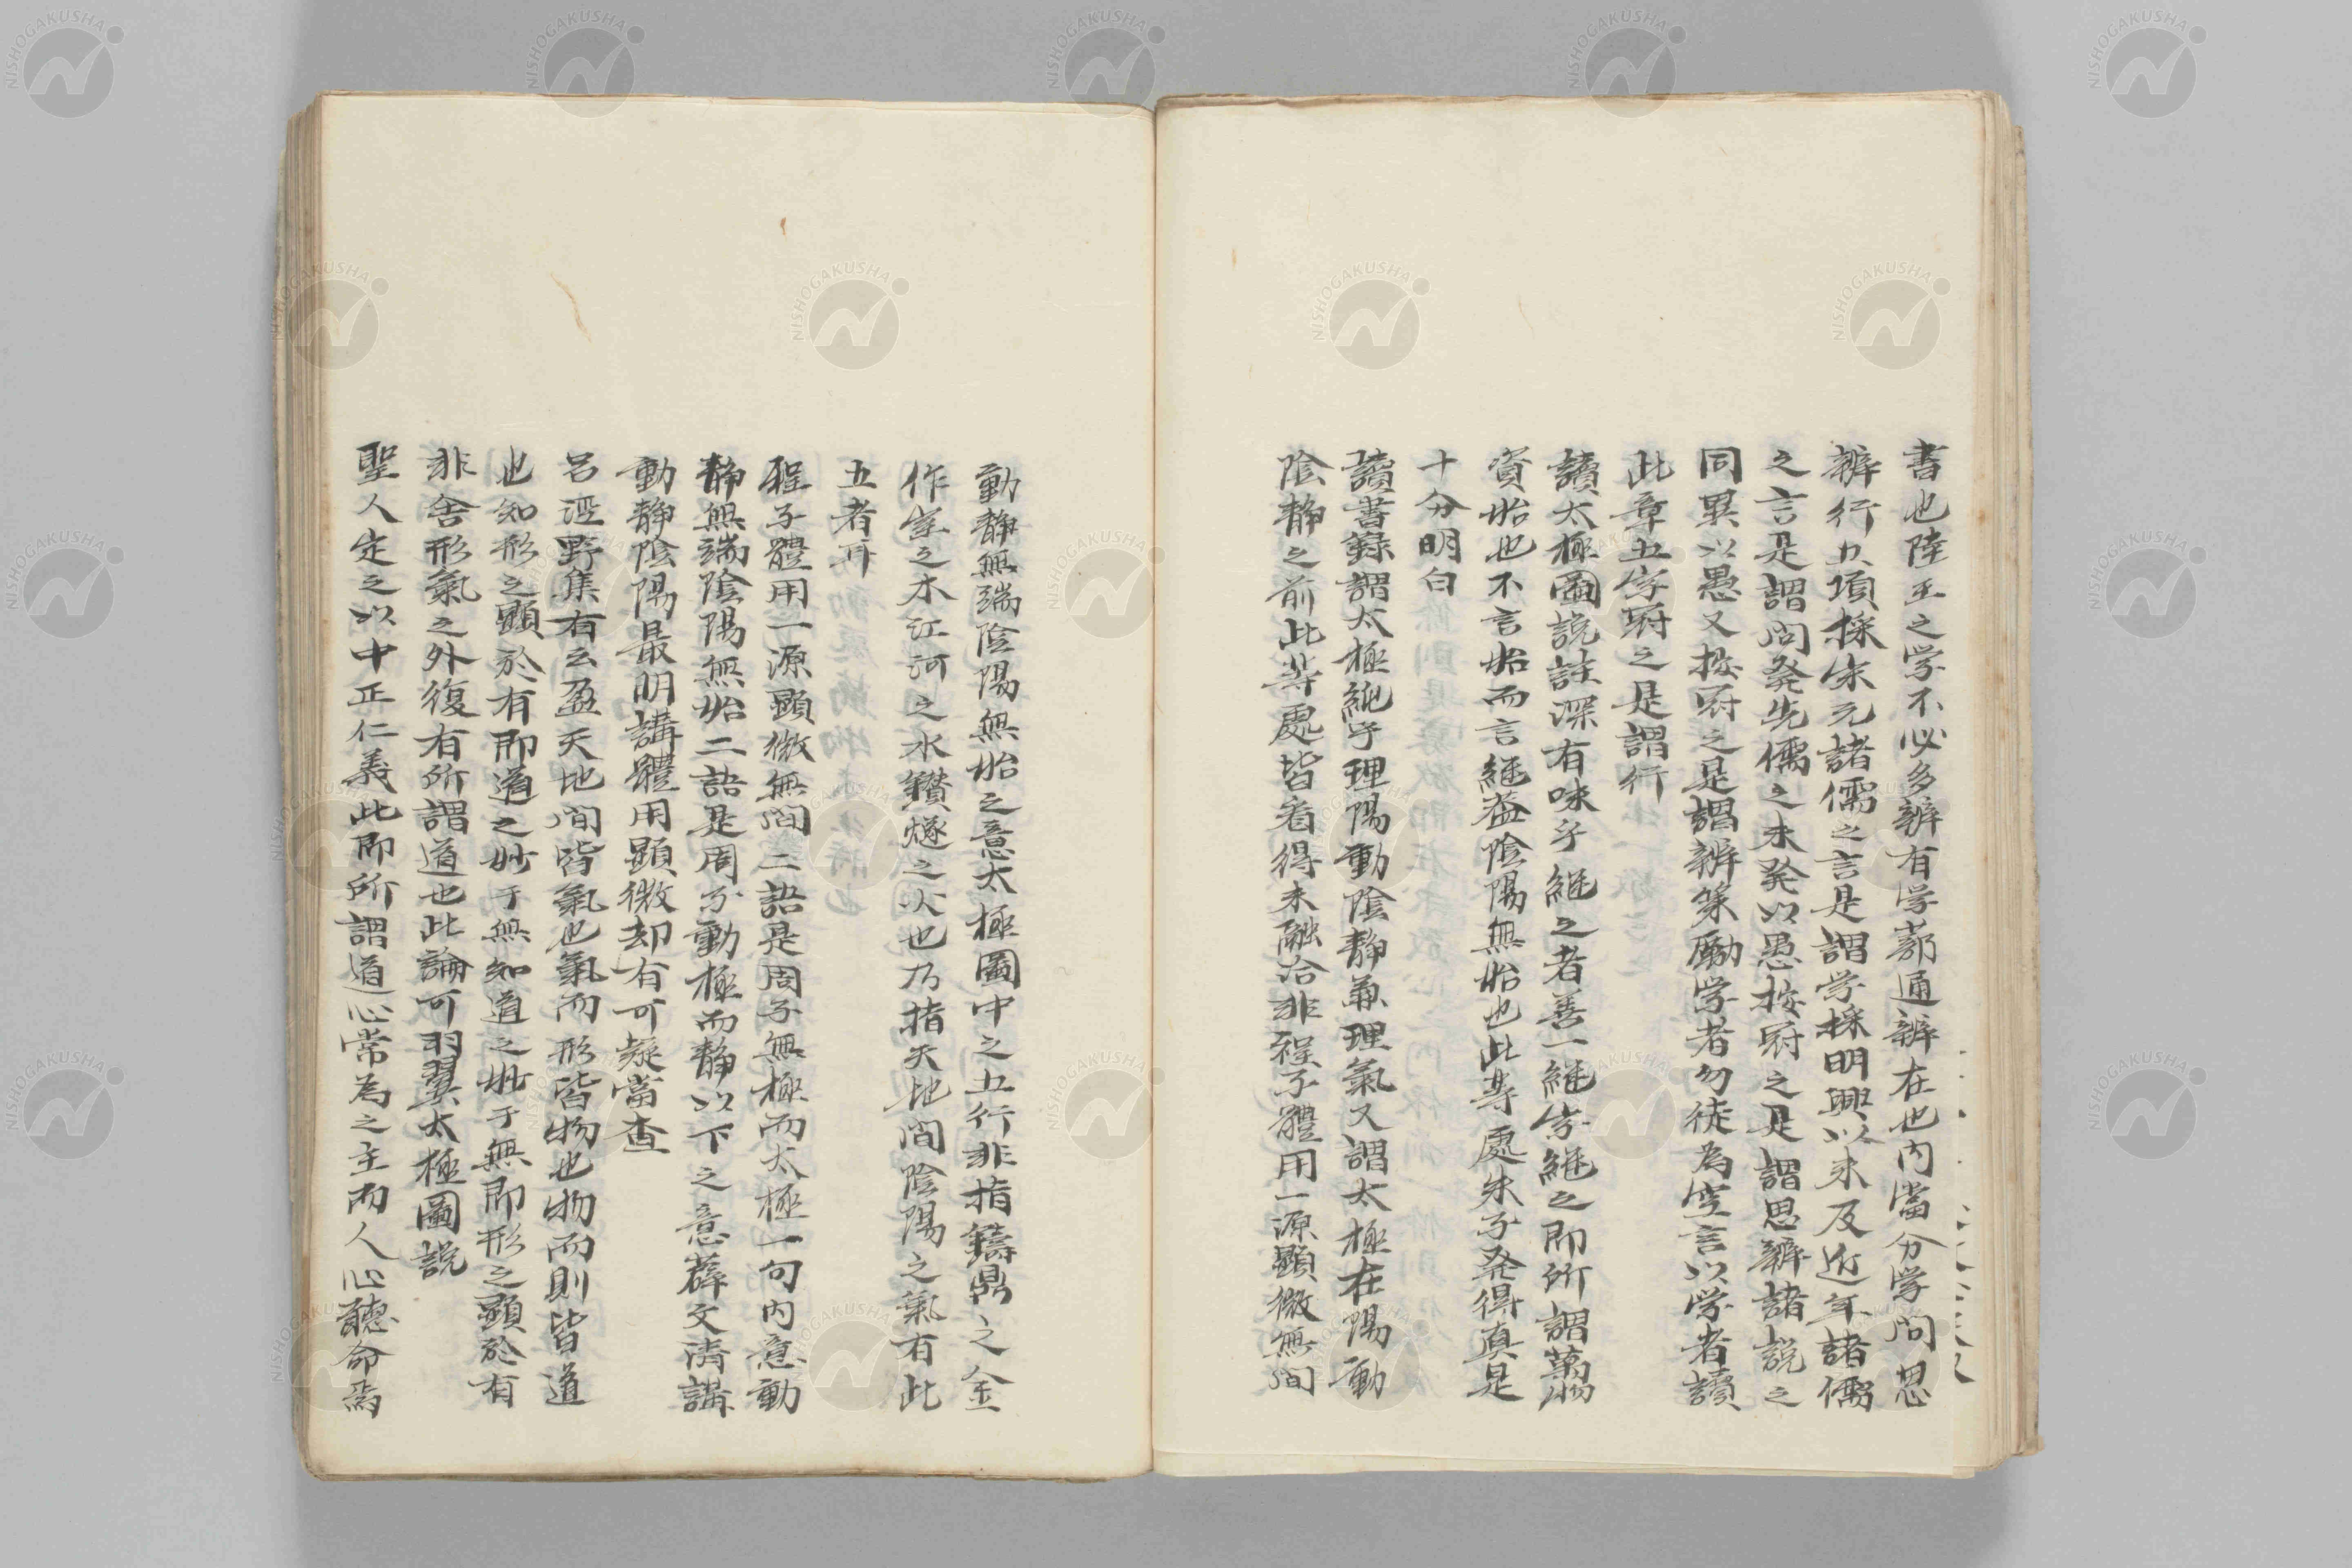 書也陸王之学不必多辨有学蔀通辨在也内當分学問思
辨行五項採宋元諸儒之言是謂学採明興以来及近年諸儒
之言是謂問発先儒之未発以愚按冠之是謂思辨諸說之
同異以愚又按冠之是謂辨策勵学者勿徒為空言以学者讀
此章五字冠之是謂行
讀太極圖說註深有味乎継之者善一継字継之即所謂萬物
資始也不言始而言継蓋陰陽無始也此等處朱子発得真是
十分明白
讀書録謂太極純乎理陽動陰静兼理氣又謂太極在陽動
陰静之前此等處皆看得未融洽非程子體用一源顕微無間
動静無端陰陽無始之意太極圖中之五行非指鑄鼎之金
作室之木江河之水鑚燧之火也乃指天地間陰陽之氣有此
五者耳
程子體用一源顕微無間二語是周子無極而太極一句内意動
静無端陰陽無始二語是周子動極而静以下之意薛文清講
動静陰陽最明講體用顕微却有可疑當查
呂涇野集有云盈天地間皆氣也氣而形皆物也物而則皆道
也知形之顕於有即道之妙于無知道之妙于無即形之顕於有
非舍形氣之外復有所謂道也此論可羽翼太極圖說
聖人定之以中正仁義此即所謂道心常為之主而人心聽命焉
NISHOGAKUSHA